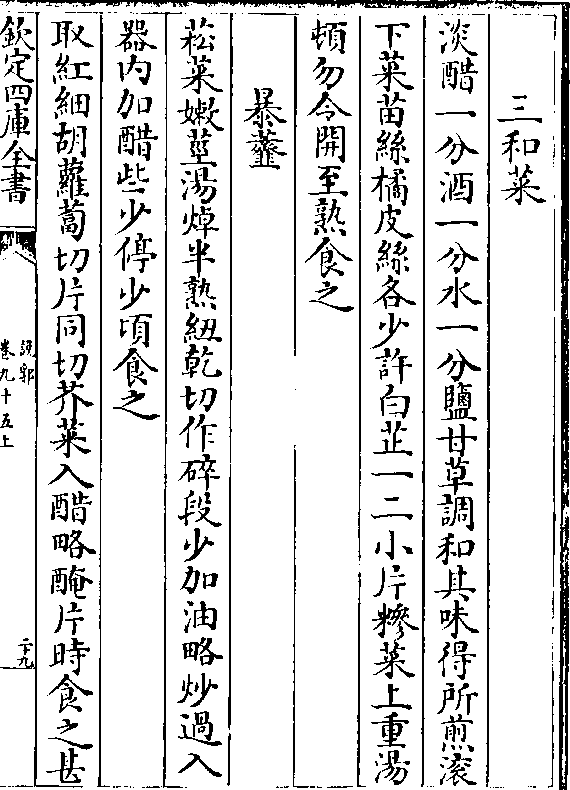 三和菜
淡醋一分酒一分水一分鹽甘草調和其味得所煎滾
下菜苗絲橘皮絲各少許白芷一二小片糝菜上重湯
頓勿令開至熟食之
暴虀
菘菜嫩莖湯焯半熟紐乾切作碎段少加油略炒過入
器内加醋些少停少頃食之
取紅細胡蘿蔔切片同切芥菜入醋略醃片時食之甚
欽定四庫全書
說郛
卷九十五上
二十九